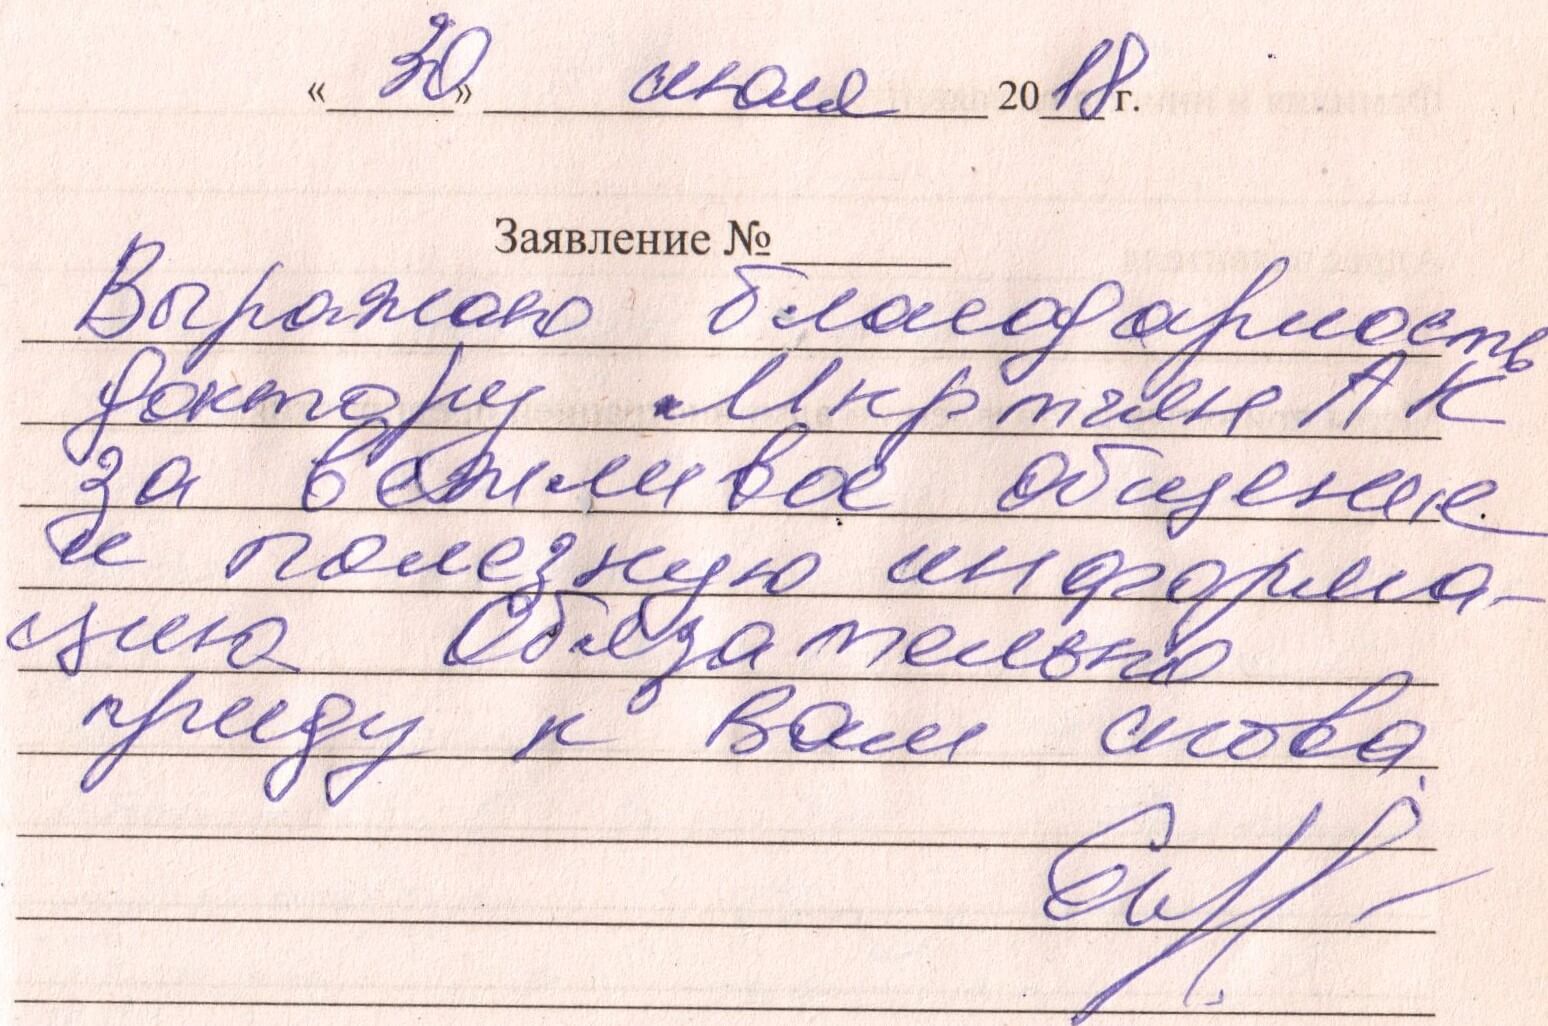 « 30 » июля 20 18 г.
Заявление №
Выражаю благодарность
доктору Мкртчян А К
за вежливое общение
и полезную информа-
цию Обязательно
приду к вам снова.